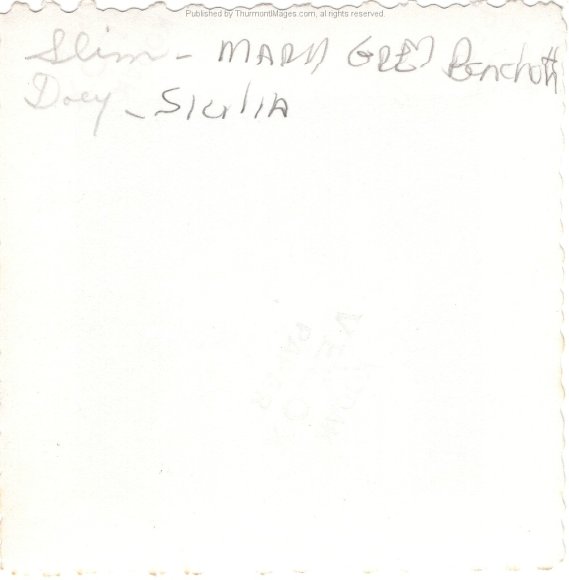 Published by ThurmontImages.com, all rights reserved.
Slim - MARY GREY Benchoff
Doey - Sicilia